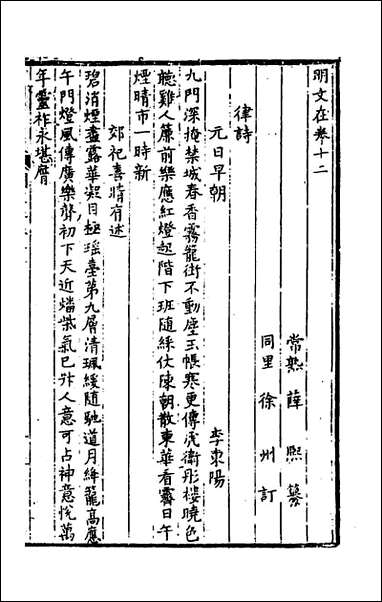 明文在卷十二
常熟薛熙纂
同里徐州訂
律詩
元日早朝　李東陽
九門深掩禁城春香霧籠街不動塵玉帳寒更傳虎衛彤樓曉色
聽雞人簾前樂應紅燈起階下班隨綵仗陳朝散東華看霽日午
煙晴市一時新
郊祀喜晴有述
碧消煙盡露華凝目極瑤臺第九層清珮緩隨馳道月絳籠高應
午門燈風傳廣樂聲初下天近燔柴氣已升人意可占神意悅萬
年靈祚永堪膺